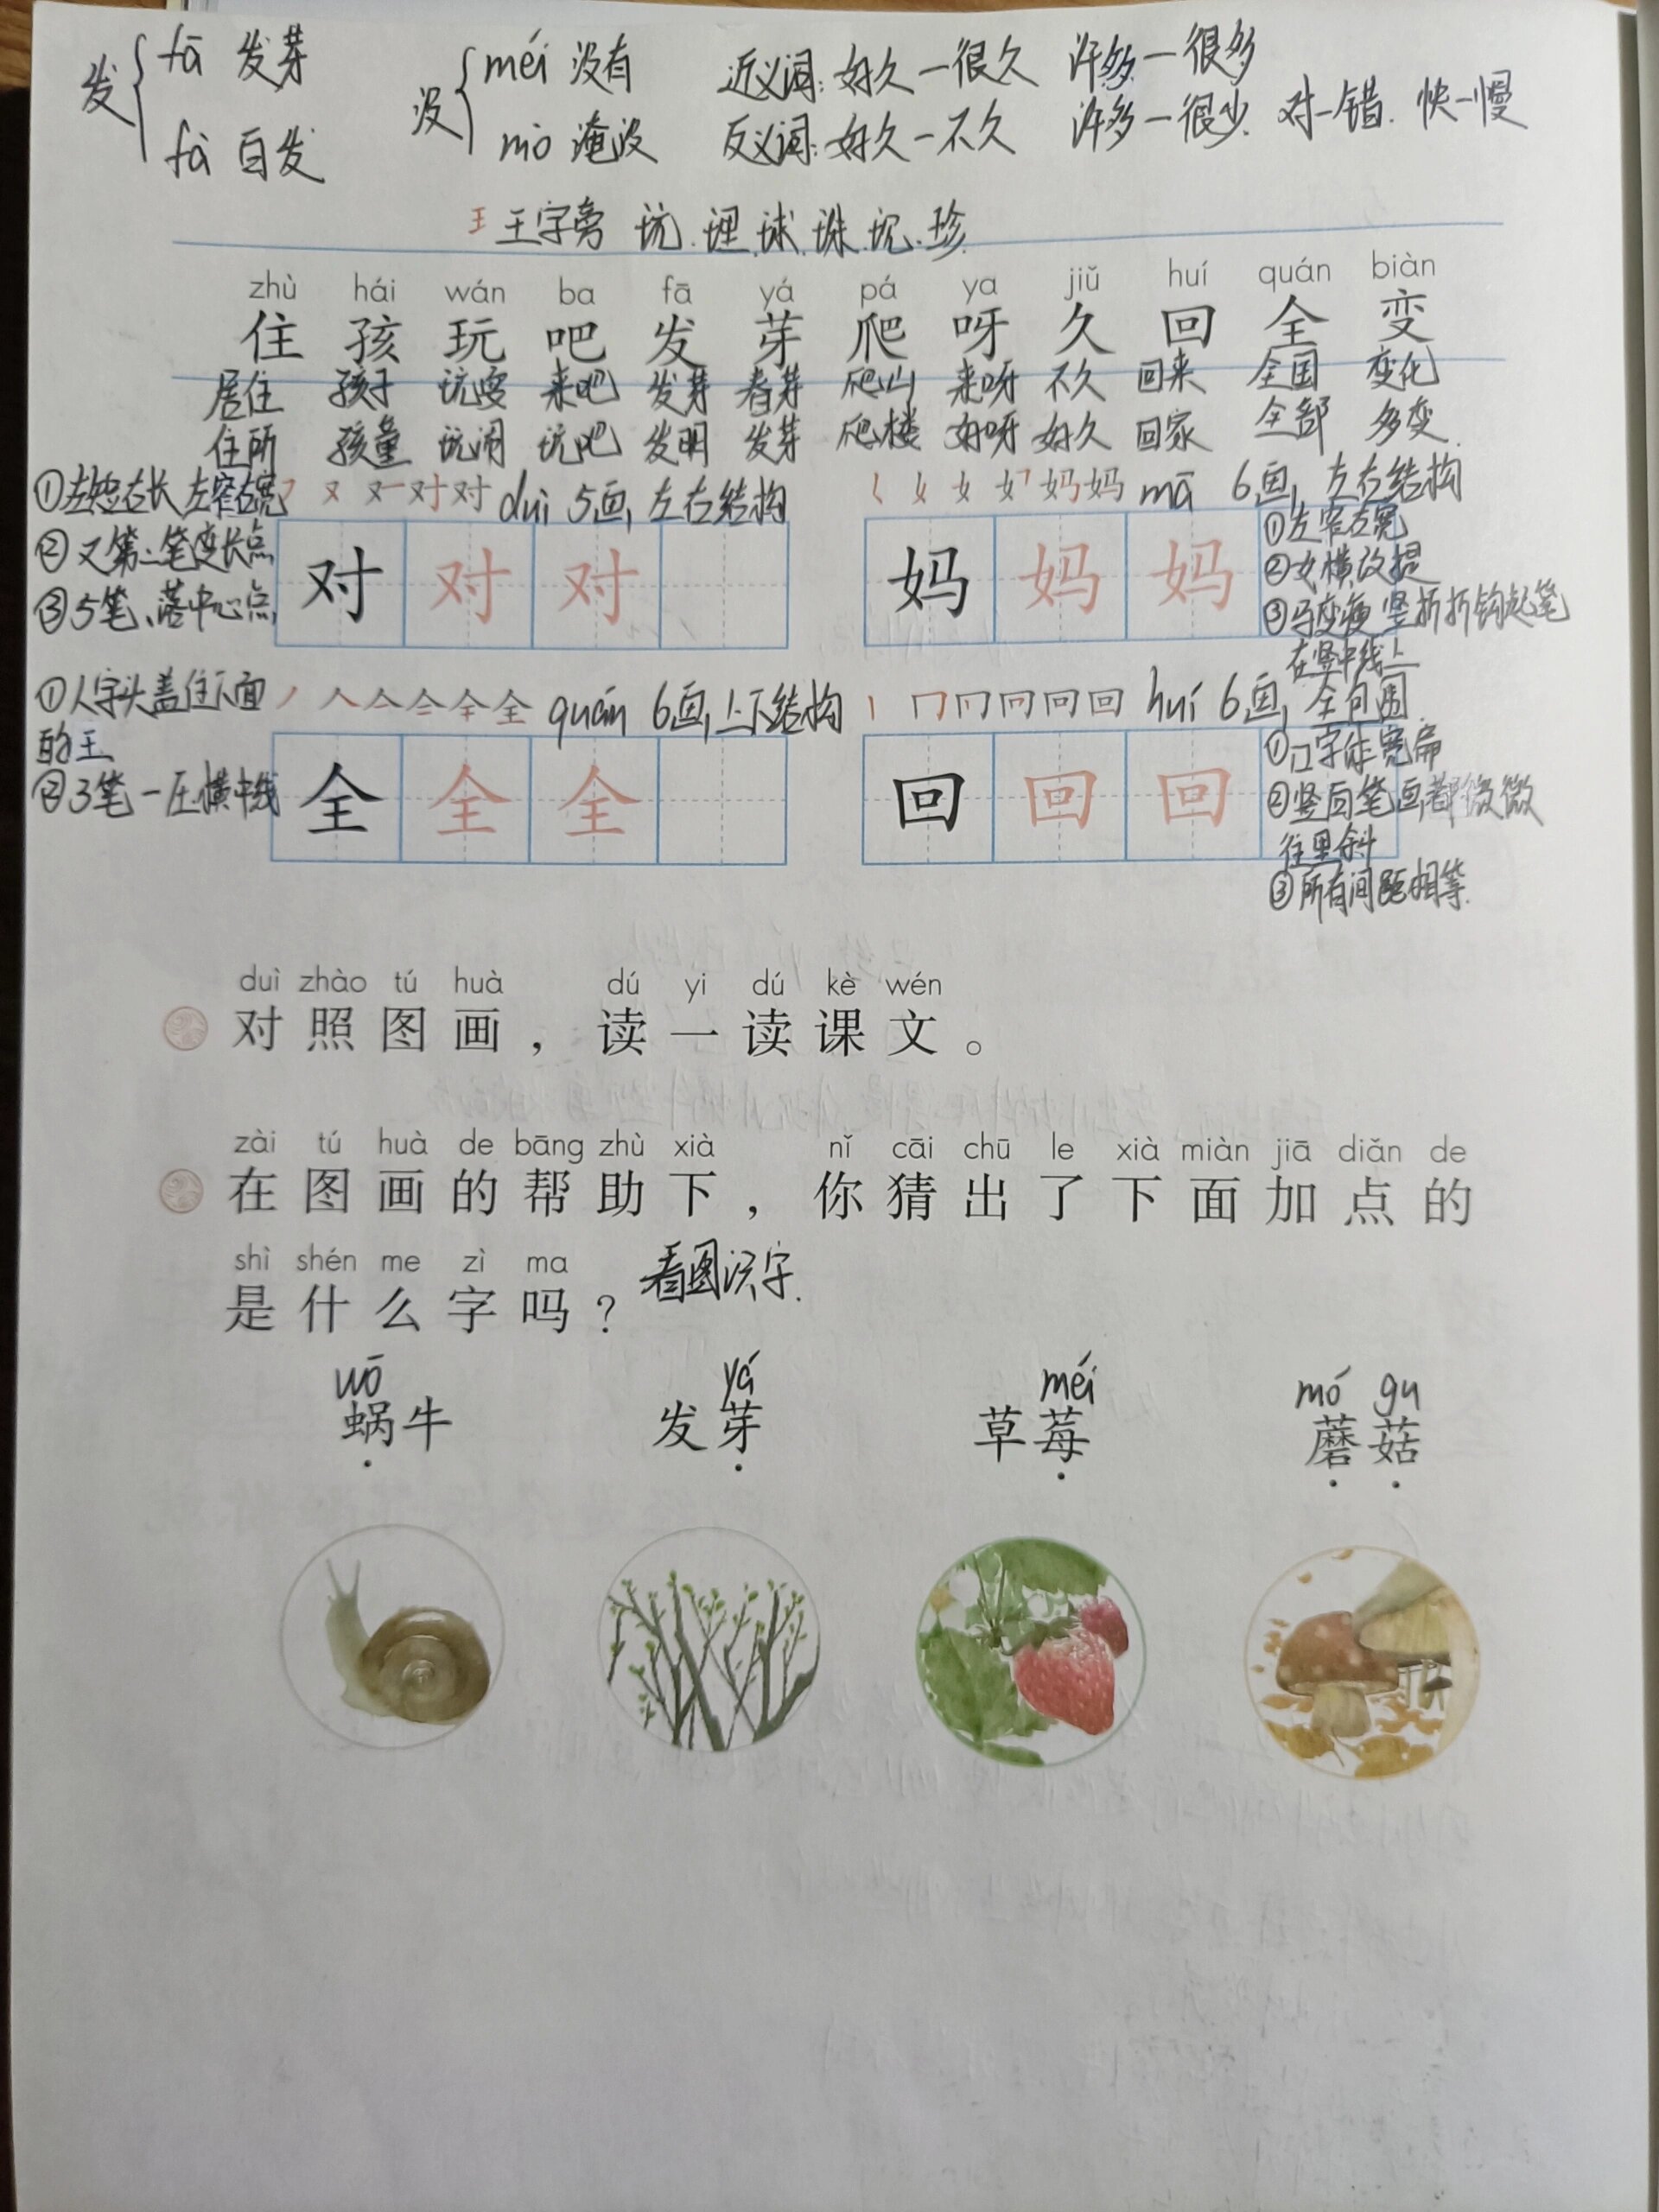 发 { fā 发芽
fà 白发
没 { méi 没有
mò 淹没
近义词：好久一很久 许多一很多
反义词：好久一不久 许多一很少 对一错 快一慢
王 王字旁 玩.理.球.珠.现.珍
zhù hái wán ba fā yá pá ya jiǔ huí quán biàn
住 孩 玩 吧 发 芽 爬 呀 久 回 全 变
居住 孩子 玩耍 来吧 发芽 春芽 爬山 来呀 不久 回来 全国 变化
住所 孩童 玩闹 玩吧 发明 发芽 爬楼 好呀 好久 回家 全部 多变
对 对 duì 5画，左右结构
①左短右长 左窄右宽
②又第二笔变长点
③5笔、落中心点
对 对 对
妈 妈 mā 6画，左右结构
①左窄右宽
②女横改提
③马变瘦 竖折折钩起笔
在竖中线上
妈 妈 妈
全 全 quán 6画，上下结构
①人字头盖住下面
的王
②3笔一压横中线
全 全 全
回 回 huí 6画，全包围
①口字体宽扁
②竖向笔画都微微
往里斜
③所有间距相等.
回 回 回
duì zhào tú huà dú yi dú kè wén
对照图画，读一读课文。
zài tú huà de bāng zhù xià nǐ cāi chū le xià miàn jiā diǎn de
在图画的帮助下，你猜出了下面加点的
shì shén me zì ma
是什么字吗？ 看图识字.
wō yá méi mó gu
蜗牛 发芽 草莓 蘑菇